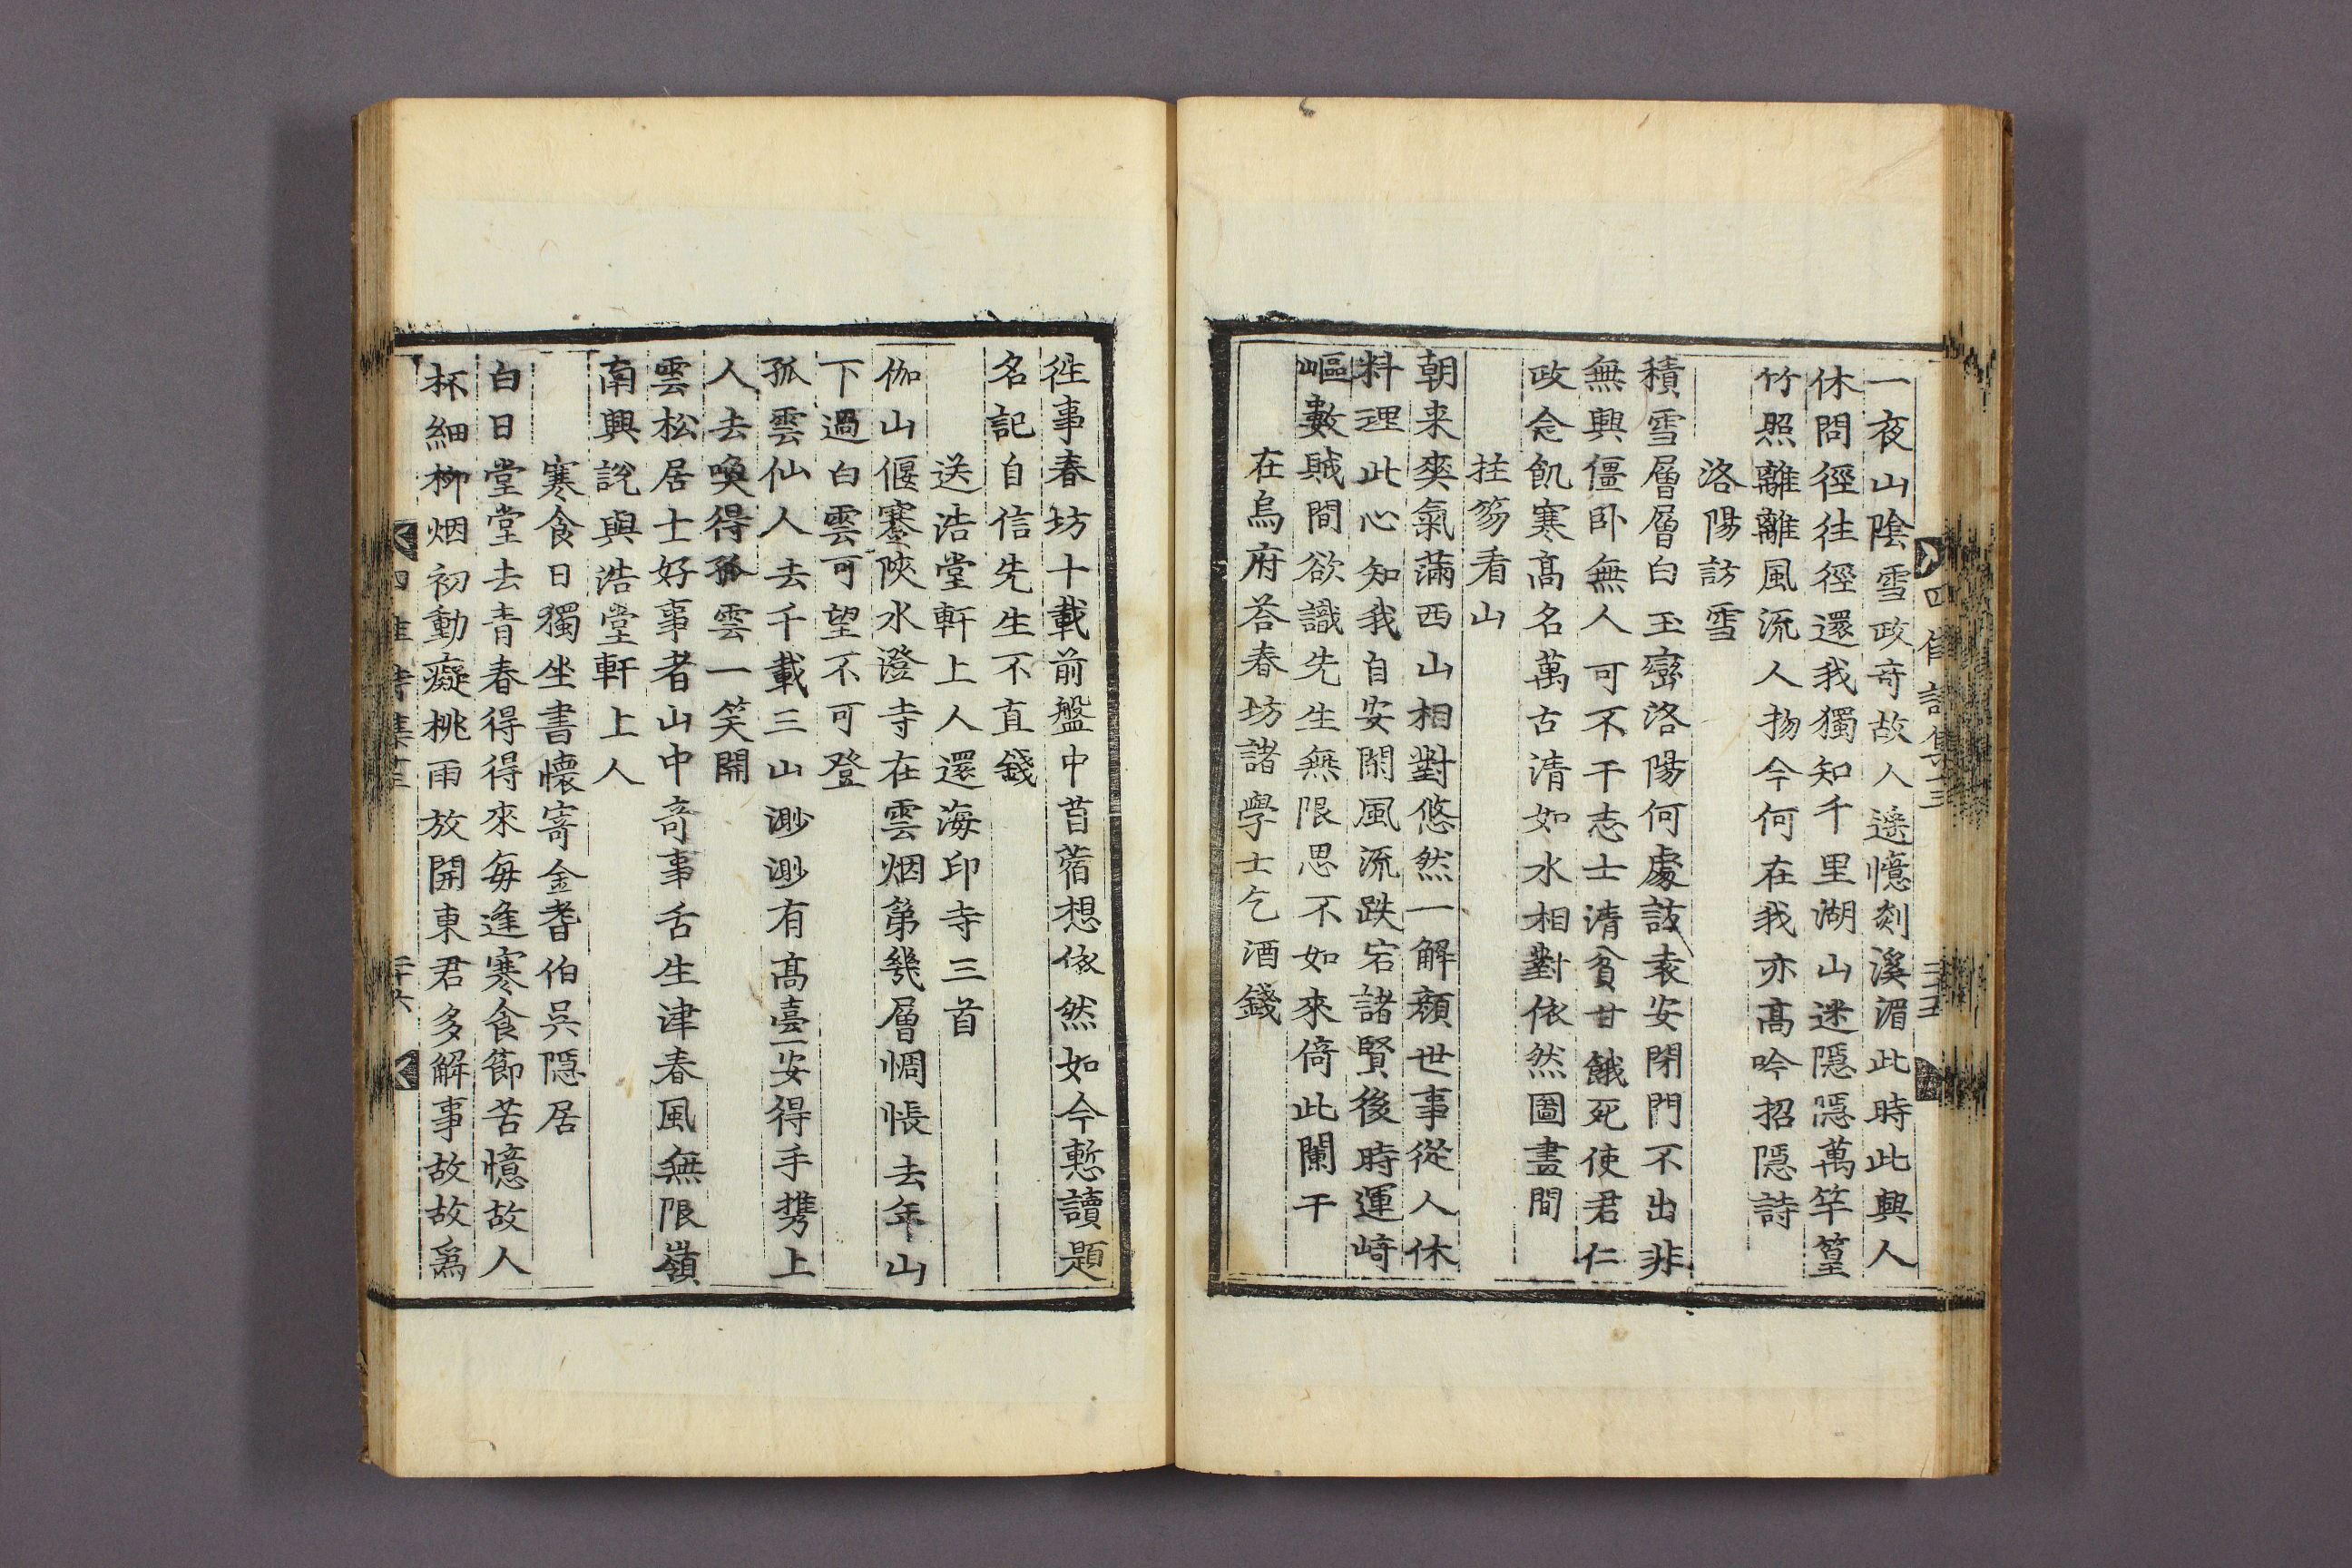 四佳詩集十三
一夜山陰雪政奇故人遥憶剡溪湄此時此興人
休問徑徃徑還我獨知千里湖山迷隠隠萬竿篁
竹照離離風流人物今何在我亦高吟招隠詩
洛陽訪雪
積雪層層白玉巒洛陽何處訪袁安閉門不出非
無興僵卧無人可不干志士清貧甘餓死使君仁
政念飢寒髙名萬古清如水相對依然圖畫間
拄笏看山
朝来爽氣滿西山相對悠然一解顔世事從人休
料理此心知我自安閑風流跌宕諸賢後時運崎
嶇數賊間欲識先生無限思不如來倚此闌干
在烏府荅春坊諸學士乞酒錢
徃事春坊十載前盤中苜蓿想依然如今慙讀題
名記自信先生不直錢
送浩堂軒上人還海印寺三首
伽山偃蹇陜水澄寺在雲烟第幾層惆悵去年山
下過白雲可望不可登
孤雲仙人去千載三山渺渺有髙臺安得手携上
人去喚得孤雲一笑開
雲松居士好事者山中奇事舌生津春風無限嶺
南興說與浩堂軒上人
寒食日獨坐書懷寄金耆伯吳隠居
白日堂堂去青春得得來毎逢寒食節苦憶故人
杯細柳烟初動癡桃雨放開東君多解事故故爲
四佳詩集十三
二十六